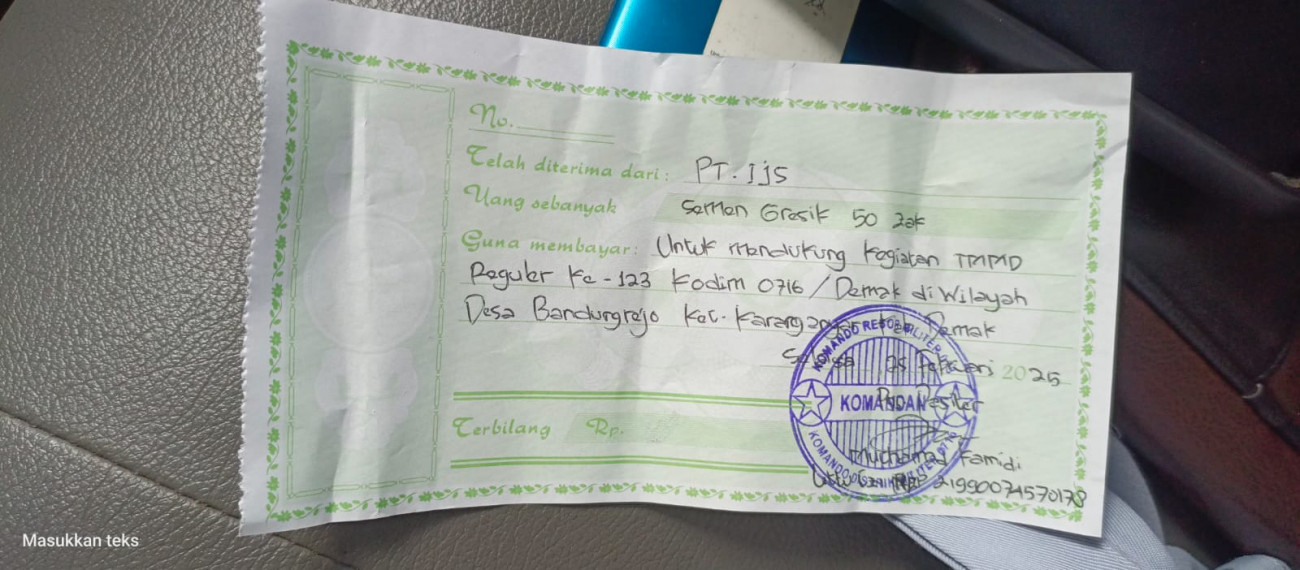 No.
Telah diterima dari: PT. IjS
Uang sebanyak Semen Gresik 50 Zak
Guna membayar: Untuk mendukung kegiatan TMMD
Reguler Ke-123 Kodim 0716/Demak di Wilayah
Desa Bandungrejo Kec. Karang Demak
Selasa 25 Februari 2025
KOMANDO RESOR MILITER
KOMANDAN
Pasiter
Terbilang Rp.
Muchamad Famidi
NRP 21990074570178
Masukkan teks